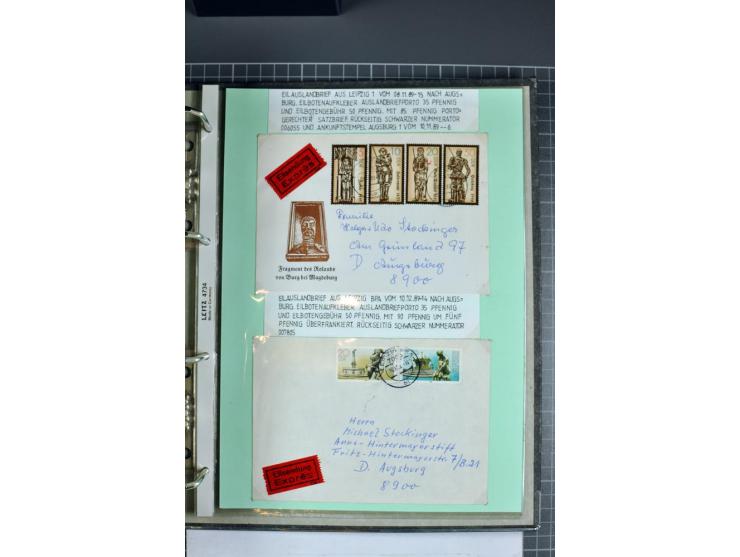 EILAUSLANDBRIEF AUS LEIPZIG 1 VOM 08.11.89-15 NACH AUGS=
BURG. EILBOTENAUFKLEBER. AUSLANDBRIEFPORTO 35 PFENNIG
UND EILBOTENGEBÜHR 50 PFENNIG. MIT 85 PFENNIG PORTO=
GERECHTER SATZBRIEF. RÜCKSEITIG SCHWARZER NUMMERATOR
006055 UND ANKUNFTSTEMPEL AUGSBURG 1 VOM 10.11.89--6.
Eilsendung
Exprès
10
20
Familie
Helga Udo Stockinger
Am Grünland 97
D Augsburg
8900
Fragment des Rolands
von Burg bei Magdeburg
LEITZ 4734
EILAUSLANDBRIEF AUS LEIPZIG BPA VOM 10.12.89-14 NACH AUGS=
BURG. EILBOTENAUFKLEBER. AUSLANDBRIEFPORTO 35 PFENNIG
UND EILBOTENGEBÜHR 50 PFENNIG. MIT 90 PFENNIG UM FÜNF
PFENNIG ÜBERFRANKIERT. RÜCKSEITIG SCHWARZER NUMMERATOR
007805
20
Herrn
Michael Stockinger
Anna-Hintermayerstift
Fritz-Hintermayerstr. 7/B.21
D. Augsburg
8900
Eilsendung
Exprès